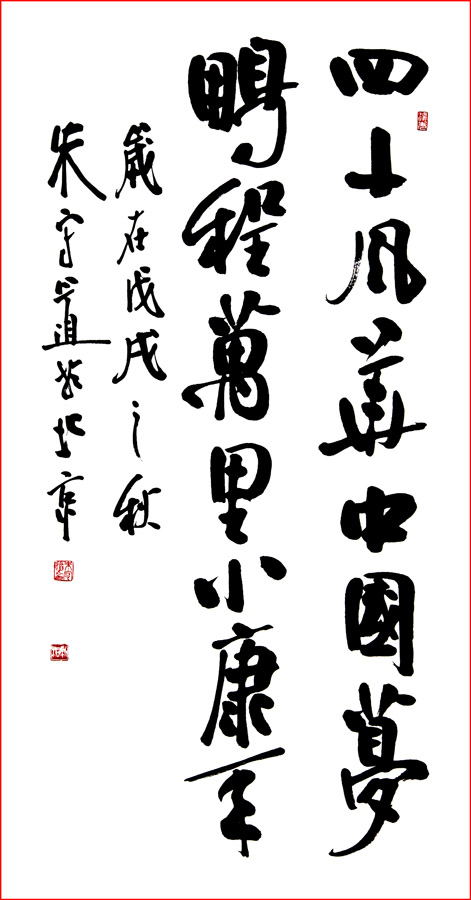 四十風華中國夢
鵬程萬里小康年
歲在戊戌之秋
朱守道書於北京